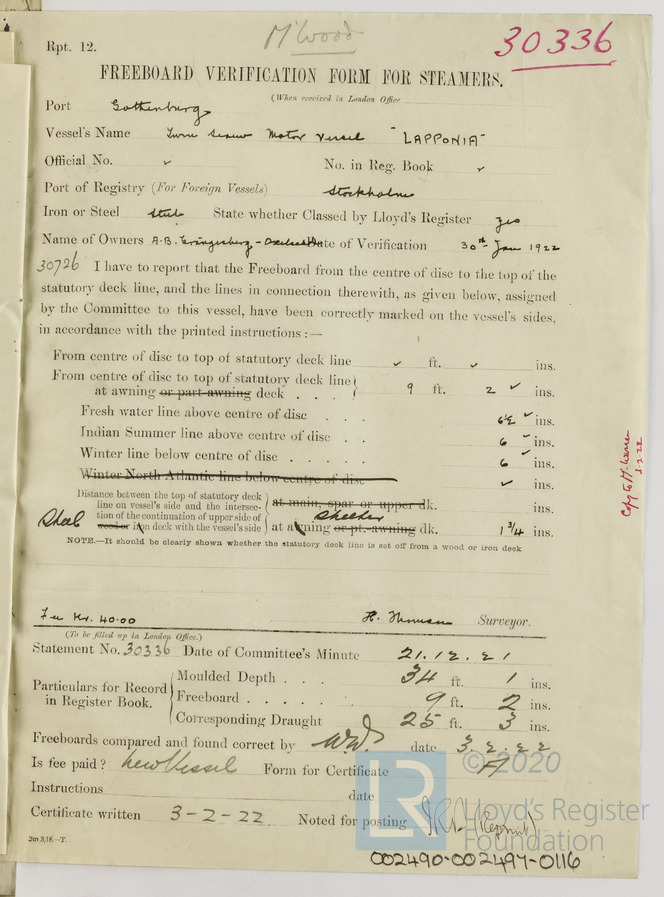 Rpt. 12.
M'Wood
30336
FREEBOARD VERIFICATION FORM FOR STEAMERS.
(When received in London Office
Port Gothenburg
Vessel's Name Twin Screw Motor Vessel "LAPPONIA"
Official No. ✓ No. in Reg. Book ✓
Port of Registry (For Foreign Vessels) Stockholm
Iron or Steel Steel State whether Classed by Lloyd's Register Yes
Name of Owners A.B. Grängesberg-Oxelösund Date of Verification 30th Jan 1922
30726 I have to report that the Freeboard from the centre of disc to the top of the
statutory deck line, and the lines in connection therewith, as given below, assigned
by the Committee to this vessel, have been correctly marked on the vessel's sides,
in accordance with the printed instructions :—
From centre of disc to top of statutory deck line ✓ ft. ✓ ins.
From centre of disc to top of statutory deck line
at awning or part-awning deck . . . 9 ft. 2 ✓ ins.
Fresh water line above centre of disc . . . 6½ ✓ ins.
Indian Summer line above centre of disc . . 6 ✓ ins.
Winter line below centre of disc . . . . 6 ✓ ins.
Winter North Atlantic line below centre of disc ✓ ins.
Distance between the top of statutory deck
line on vessel's side and the intersec-
tion of the continuation of upper side of
Steel wood or iron deck with the vessel's side
at main, spar or upper dk. ins.
Shelter
at awning or pt.-awning dk. 1 3/4 ins.
NOTE.—It should be clearly shown whether the statutory deck line is set off from a wood or iron deck
Copy to M. 3-2-22
Fee Kr. 40.00 H. Surveyor.
(To be filled up in London Office.)
Statement No. 30336 Date of Committee's Minute 21.12.21
Particulars for Record
in Register Book.
Moulded Depth . . . 34 ft. 1 ins.
Freeboard . . . . . . 9 ft. 2 ins.
Corresponding Draught 25 ft. 3 ins.
Freeboards compared and found correct by W.D. date 3.2.22
Is fee paid? New Vessel Form for Certificate A
Instructions date
Certificate written 3-2-22 Noted for posting (Reprint)
2m 3,18.—T.
LR
© 2020
Lloyd's Register
Foundation
002490-002497-0116